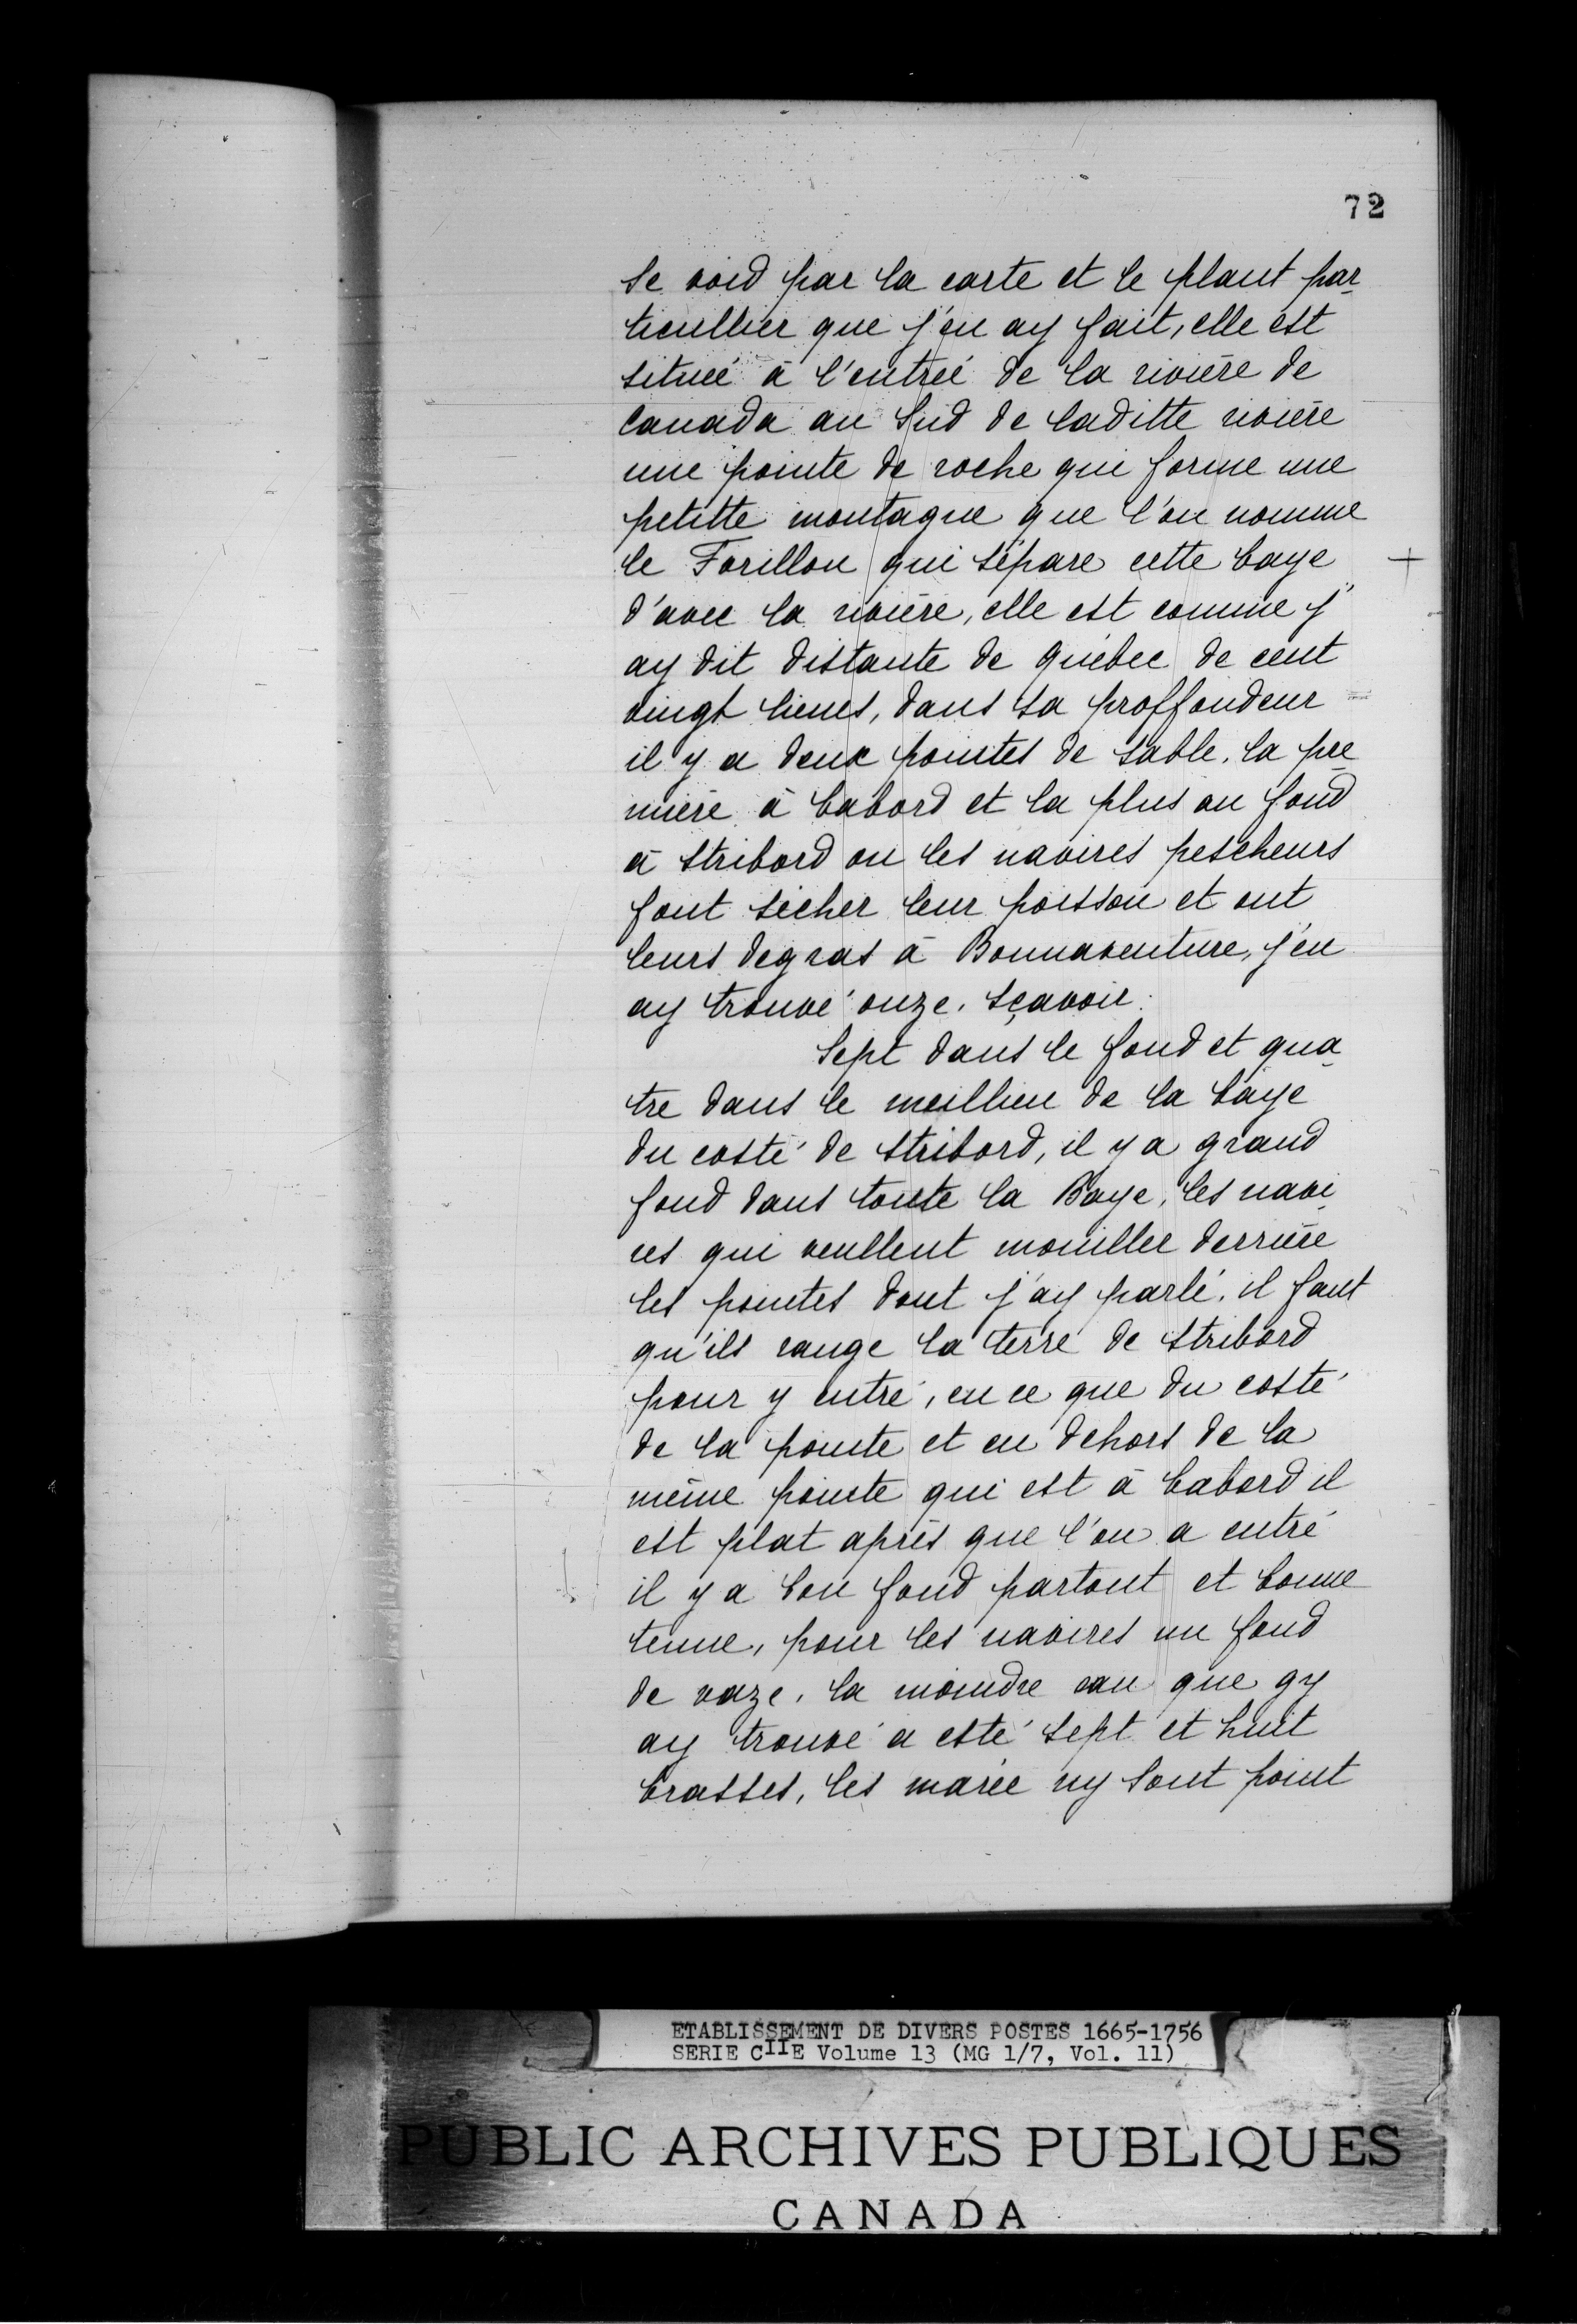 72
se void par la carte et le plant par-
ticullier que j'en ay fait, elle est
située à l'entrée de la rivière de
Canada au Sud de laditte rivière
une pointe de roche qui forme une
petitte montagne que l'on nomme
le Forillon qui sépare cette baye +
d'avec la rivière, elle est comme j'
ay dit distante de québec de cent
vingt lieues, dans sa proffondeur
il y a deux pointes de sable, la pre-
mière à babord et la plus au fond
à stribord ou les navires pescheurs
font sécher leur poisson et ont
leurs degras à Bonnaventure, j'en
ay trouvé onze, sçavoir:
Sept dans le fond et qua-
tre dans le meillieu de la baye
du costé de stribord, il y a grand
fond dans toute la Baye, les navi-
res qui veullent mouiller derrière
les pointes dont j'ay parlé, il faut
qu'ils range la terre de stribord
pour y entré, en ce que du costé
de la pointe et en dehors de la
même pointe qui est à babord il
est plat après que l'on a entré
il y a bon fond partout et bonne
tenue, pour les navires un fond
de vaze, la moindre eau que gy
ay trouvé a esté sept et huit
brasses, les marée ny sont point
ETABLISSEMENT DE DIVERS POSTES 1665-1756
SERIE CIIE Volume 13 (MG 1/7, Vol. 11)
PUBLIC ARCHIVES PUBLIQUES
CANADA